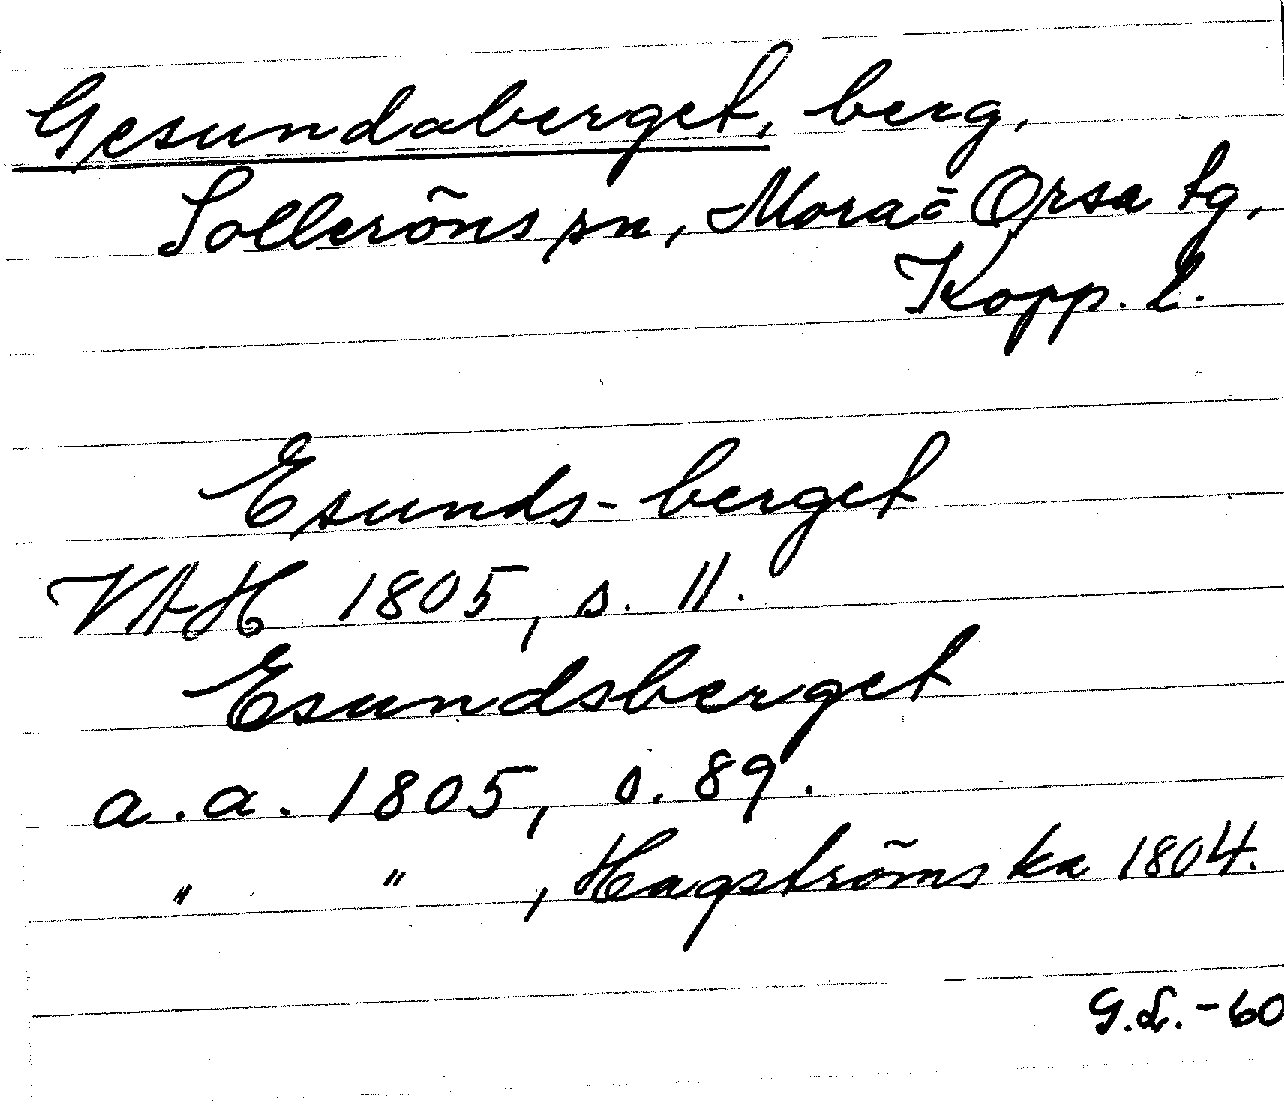 Gesundaberget, berg,
Solleröns sn, Mora o Orsa tg,
Kopp. l.
Esunds-berget
VAH 1805, s. 11.
Esundsberget
a. a. 1805, s. 89.
" " , Hagströms ka 1804.
G.L. - 60